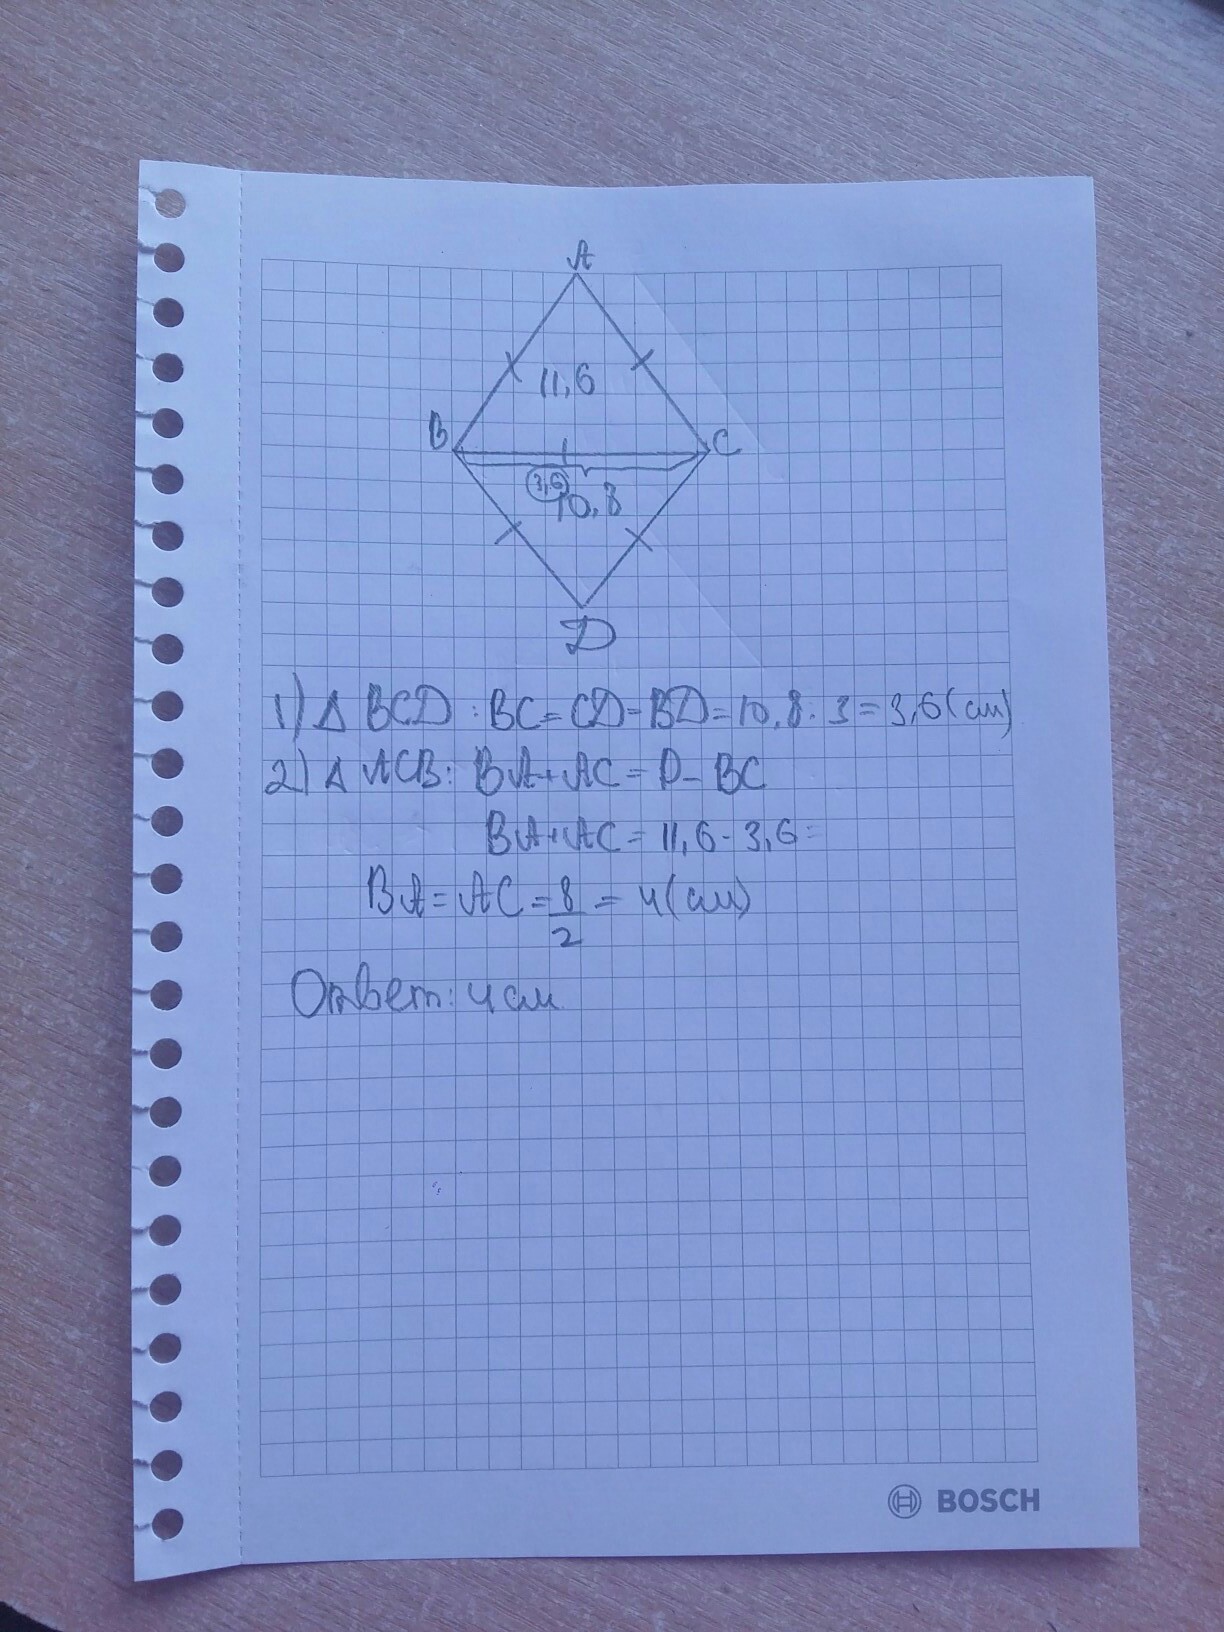 А
11,6
В
С
3,6
10,8
D
1) Δ BCD : BC = CD = BD = 10,8 : 3 = 3,6 (см)
2) Δ ACB : BA + AC = P - BC
BA + AC = 11,6 - 3,6 =
BA = AC = 8/2 = 4 (см)
Ответ: 4 см
BOSCH